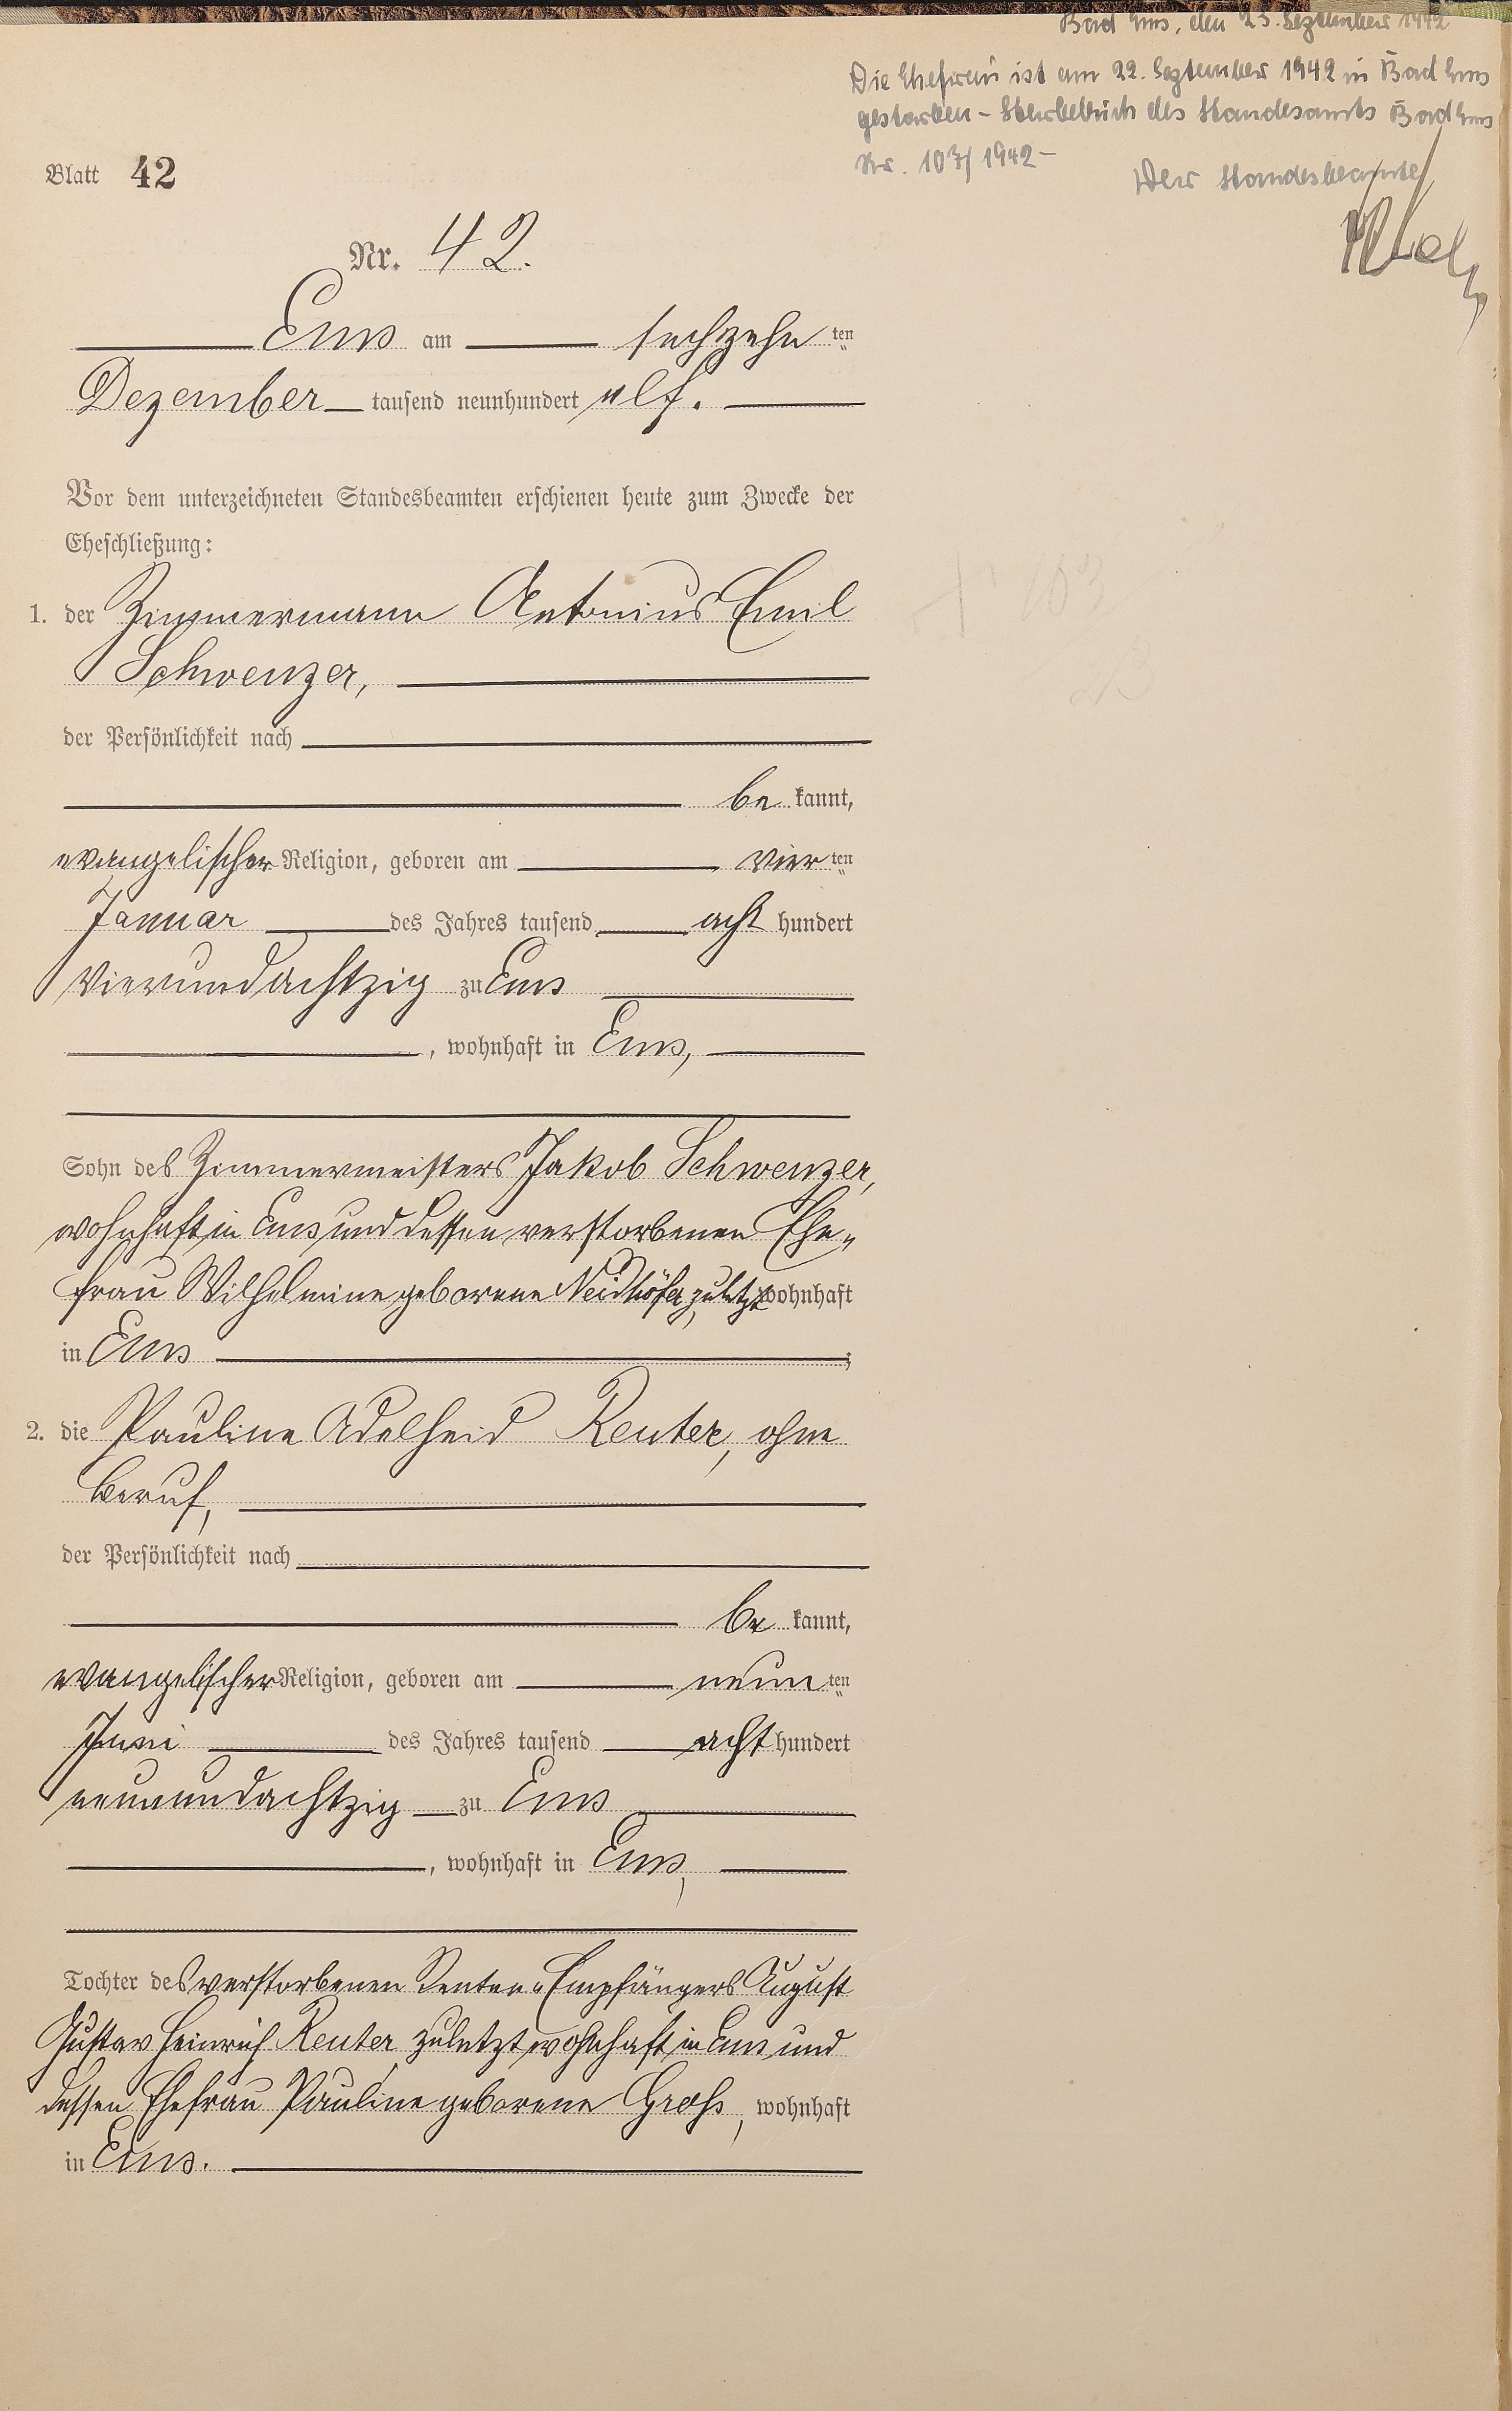 Bad Ems, den 23. September 1942
Die Ehefrau ist am 22. September 1942 in Bad Ems
gestorben - Sterbebuch des Standesamts Bad Ems
Nr. 103/1942 -
Der Standesbeamte
Blatt 42
Nr. 42.
Ems am sechzehn ten
Dezember tausend neunhundert elf.
Vor dem unterzeichneten Standesbeamten erschienen heute zum Zwecke der
Eheschließung:
1. der Zimmermann Antonius Emil
Schwenzer,
der Persönlichkeit nach
be kannt,
evangelischer Religion, geboren am vier ten
Januar des Jahres tausend acht hundert
vierundachtzig zu Ems
, wohnhaft in Ems,
Sohn des Zimmermeisters Jakob Schwenzer,
wohnhaft in Ems und dessen verstorbenen Ehe-
frau Wilhelmine geborene Neidhöfer, zuletzt wohnhaft
in Ems ;
2. die Pauline Adelheid Reuter, ohne
Beruf,
der Persönlichkeit nach
be kannt,
evangelischer Religion, geboren am neun ten
Juni des Jahres tausend acht hundert
neunundachtzig zu Ems
, wohnhaft in Ems,
Tochter des verstorbenen Renten-Empfängers August
Gustav Heinrich Reuter zuletzt wohnhaft in Ems und
dessen Ehefrau Pauline geborene Groß, wohnhaft
in Ems.